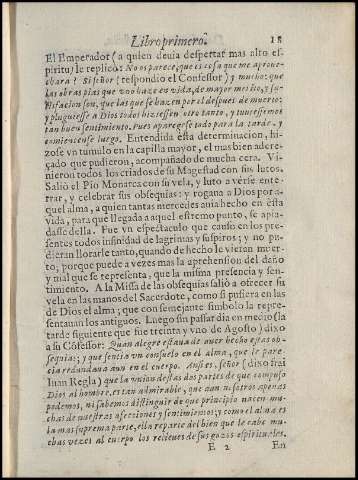 Libro primero. 18
El Emperador (a quien deuia despertar mas alto es-
piritu) le replicò: No os parece, que es cosa que me aproue-
chará? Si señor (respondio el Confessor) y mucho: que
las obras pias que vno haze en vida, de mayor merito, y sa-
tisfacion son, que las que se hazen por èl despues de muerto:
y pluguiesse a Dios todos hiziessen otro tanto, y tuuiessemos
tan buen sentimiento. Pues aparejese todo para la tarde, y
comiencense luego. Entendida esta determinacion, hi-
zose vn tumulo en la capilla mayor, el mas bien adere-
çado que pudieron, acompañado de mucha cera. Vi-
nieron todos los criados de su Magestad con sus lutos.
Saliò el Pio Monarca con su vela, y luto a verse ente-
rrar, y celebrar sus obsequias: y rogaua a Dios por a-
quel alma, a quien tantas mercedes auia hecho en esta
vida, para que llegada a aquel estremo punto, se apia-
dasse della. Fue vn espectaculo que causò en los pre-
sentes todos infinidad de lagrimas y suspiros; y no pu-
dieran llorarle tanto, quando de hecho le vieran muer-
to; porque puede a vezes mas la aprehension del daño
y mal que se representa, que la misma presencia y sen-
timiento. A la Missa de las obsequias saliò a ofrecer su
vela en las manos del Sacerdote, como si pusiera en las
de Dios el alma; que con semejante simbolo la repre-
sentauan los antiguos. Luego sin passar dia en medio (la
tarde siguiente que fue treinta y vno de Agosto) dixo
a su Cõfessor: Quan alegre estaua de auer hecho estas ob-
sequias; y que sentia vn consuelo en el alma, que le pare-
cia redundaua aun en el cuerpo. Ansi es, señor (dixo frai
Iuan Regla) que la vnion destas dos partes de que compuso
Dios al hombre, es tan admirable, que aun nosotros apenas
podemos, ni sabemos distinguir de que principio nacen mu-
chas de nuestras afecciones y sentimientos; y como el alma es
la mas suprema parte, ella reparte del bien que le cabe mu-
chas vezes al cuerpo los relieues de sus gozos espirituales.
E 2 En